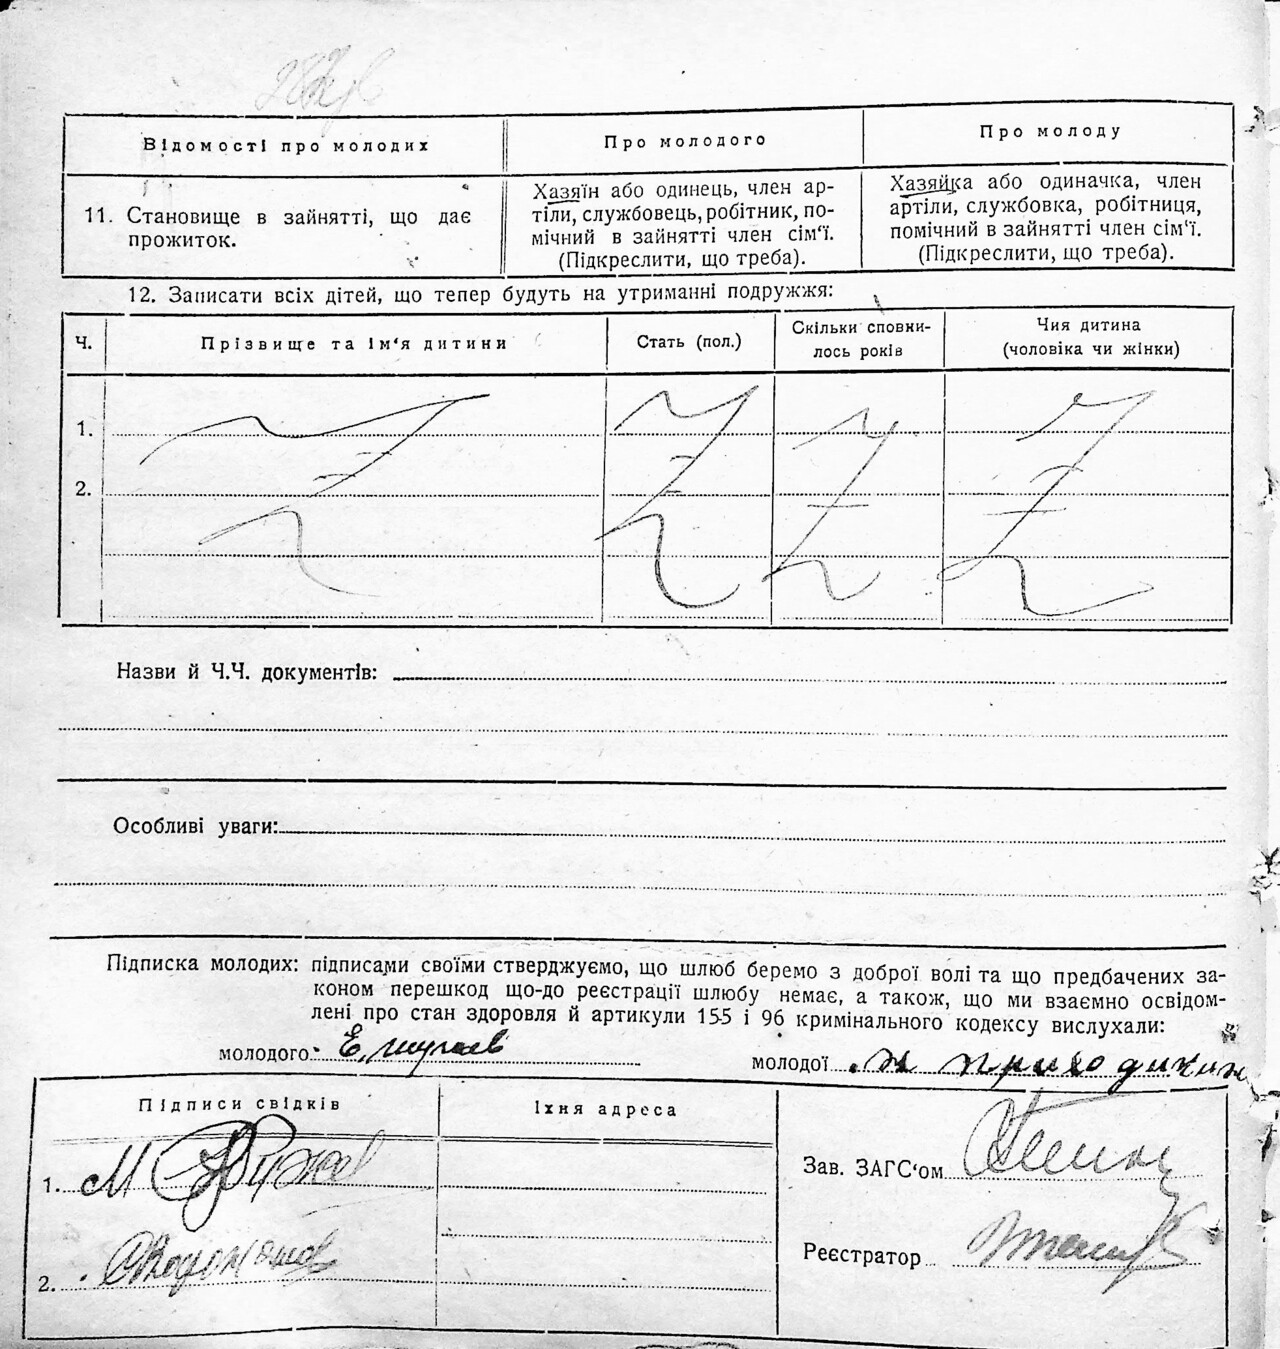 Відомості про молодих
Про молодого
Про молоду
11. Становище в зайнятті, що дає
прожиток.
Хазяїн або одинець, член ар-
тіли, службовець, робітник, по-
мічний в зайнятті член сім'ї.
(Підкреслити, що треба).
Хазяйка або одиначка, член
артіли, службовка, робітниця,
помічний в зайнятті член сім'ї.
(Підкреслити, що треба).
12. Записати всіх дітей, що тепер будуть на утриманні подружжя:
Ч.
Прізвище та ім'я дитини
Стать (пол.)
Скільки сповни-
лось років
Чия дитина
(чоловіка чи жінки)
1.
2.
Назви й Ч.Ч. документів:
Особливі уваги:
Підписка молодих: підписами своїми стверджуємо, що шлюб беремо з доброї волі та що предбачених за-
коном перешкод що-до реєстрації шлюбу немає, а також, що ми взаємно освідом-
лені про стан здоровля й артикули 155 і 96 кримінального кодексу вислухали:
молодого
молодої
Підписи свідків
Їхня адреса
1. М
2.
Зав. ЗАГС'ом
Реєстратор